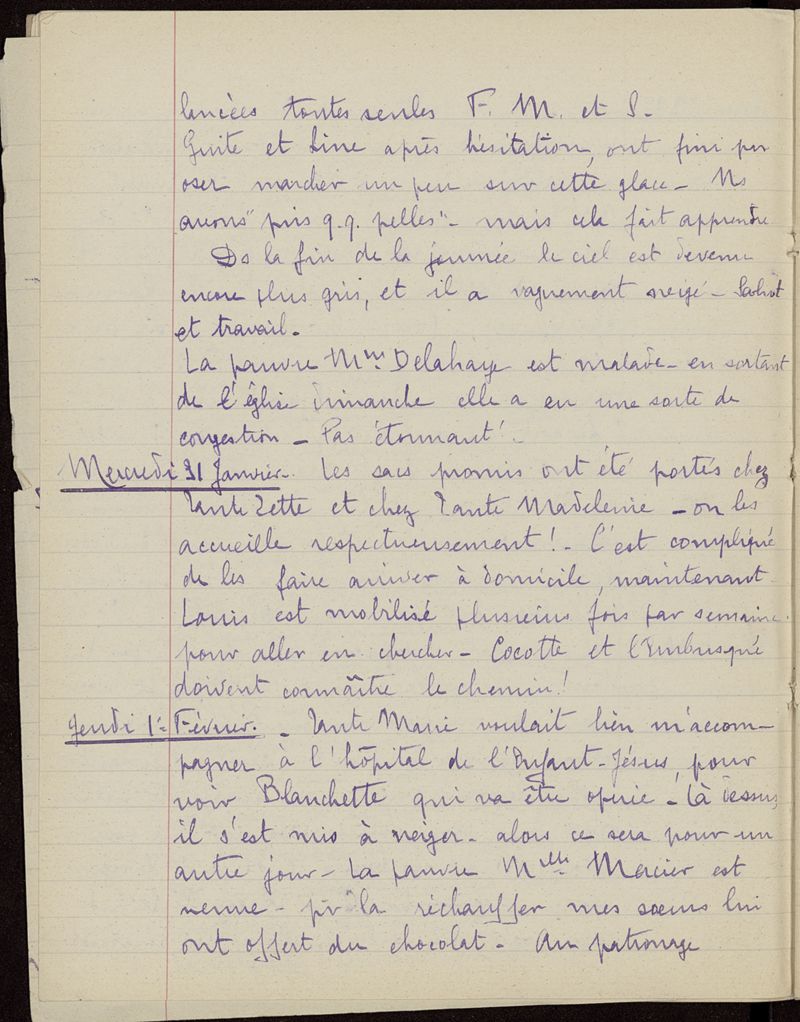 lancées toutes seules F. M. et S.
Guite et Line après hésitation, ont fini par
oser marcher un peu sur cette glace - Ns
avons "pris q.q. pelles" - mais cela fait apprendre
Ds la fin de la journée le ciel est devenu
encore plus gris, et il a vaguement neigé - Salut
et travail.
La pauvre Mme Delahaye est malade - en sortant
de l'église dimanche elle a eu une sorte de
congestion - Pas étonnant! -
Mercredi 31 Janvier - Les sacs promis ont été portés chez
Tante Zette et chez Tante Madeleine - on les
accueille respectueusement! - C'est compliqué
de les faire arriver à domicile, maintenant
Louis est mobilisé plusieurs fois par semaine
pour aller en chercher - Cocotte et l'Embusqué
doivent connaître le chemin!
Jeudi 1er Février. - Tante Marie voulait bien m'accom-
pagner à l'hôpital de l'Enfant-Jésus, pour
voir Blanchette qui va être opérée - Là dessus
il s'est mis à neiger - alors ce sera pour un
autre jour - La pauvre Melle Mercier est
venue - pr la réchauffer mes sœurs lui
ont offert du chocolat - Au patronage